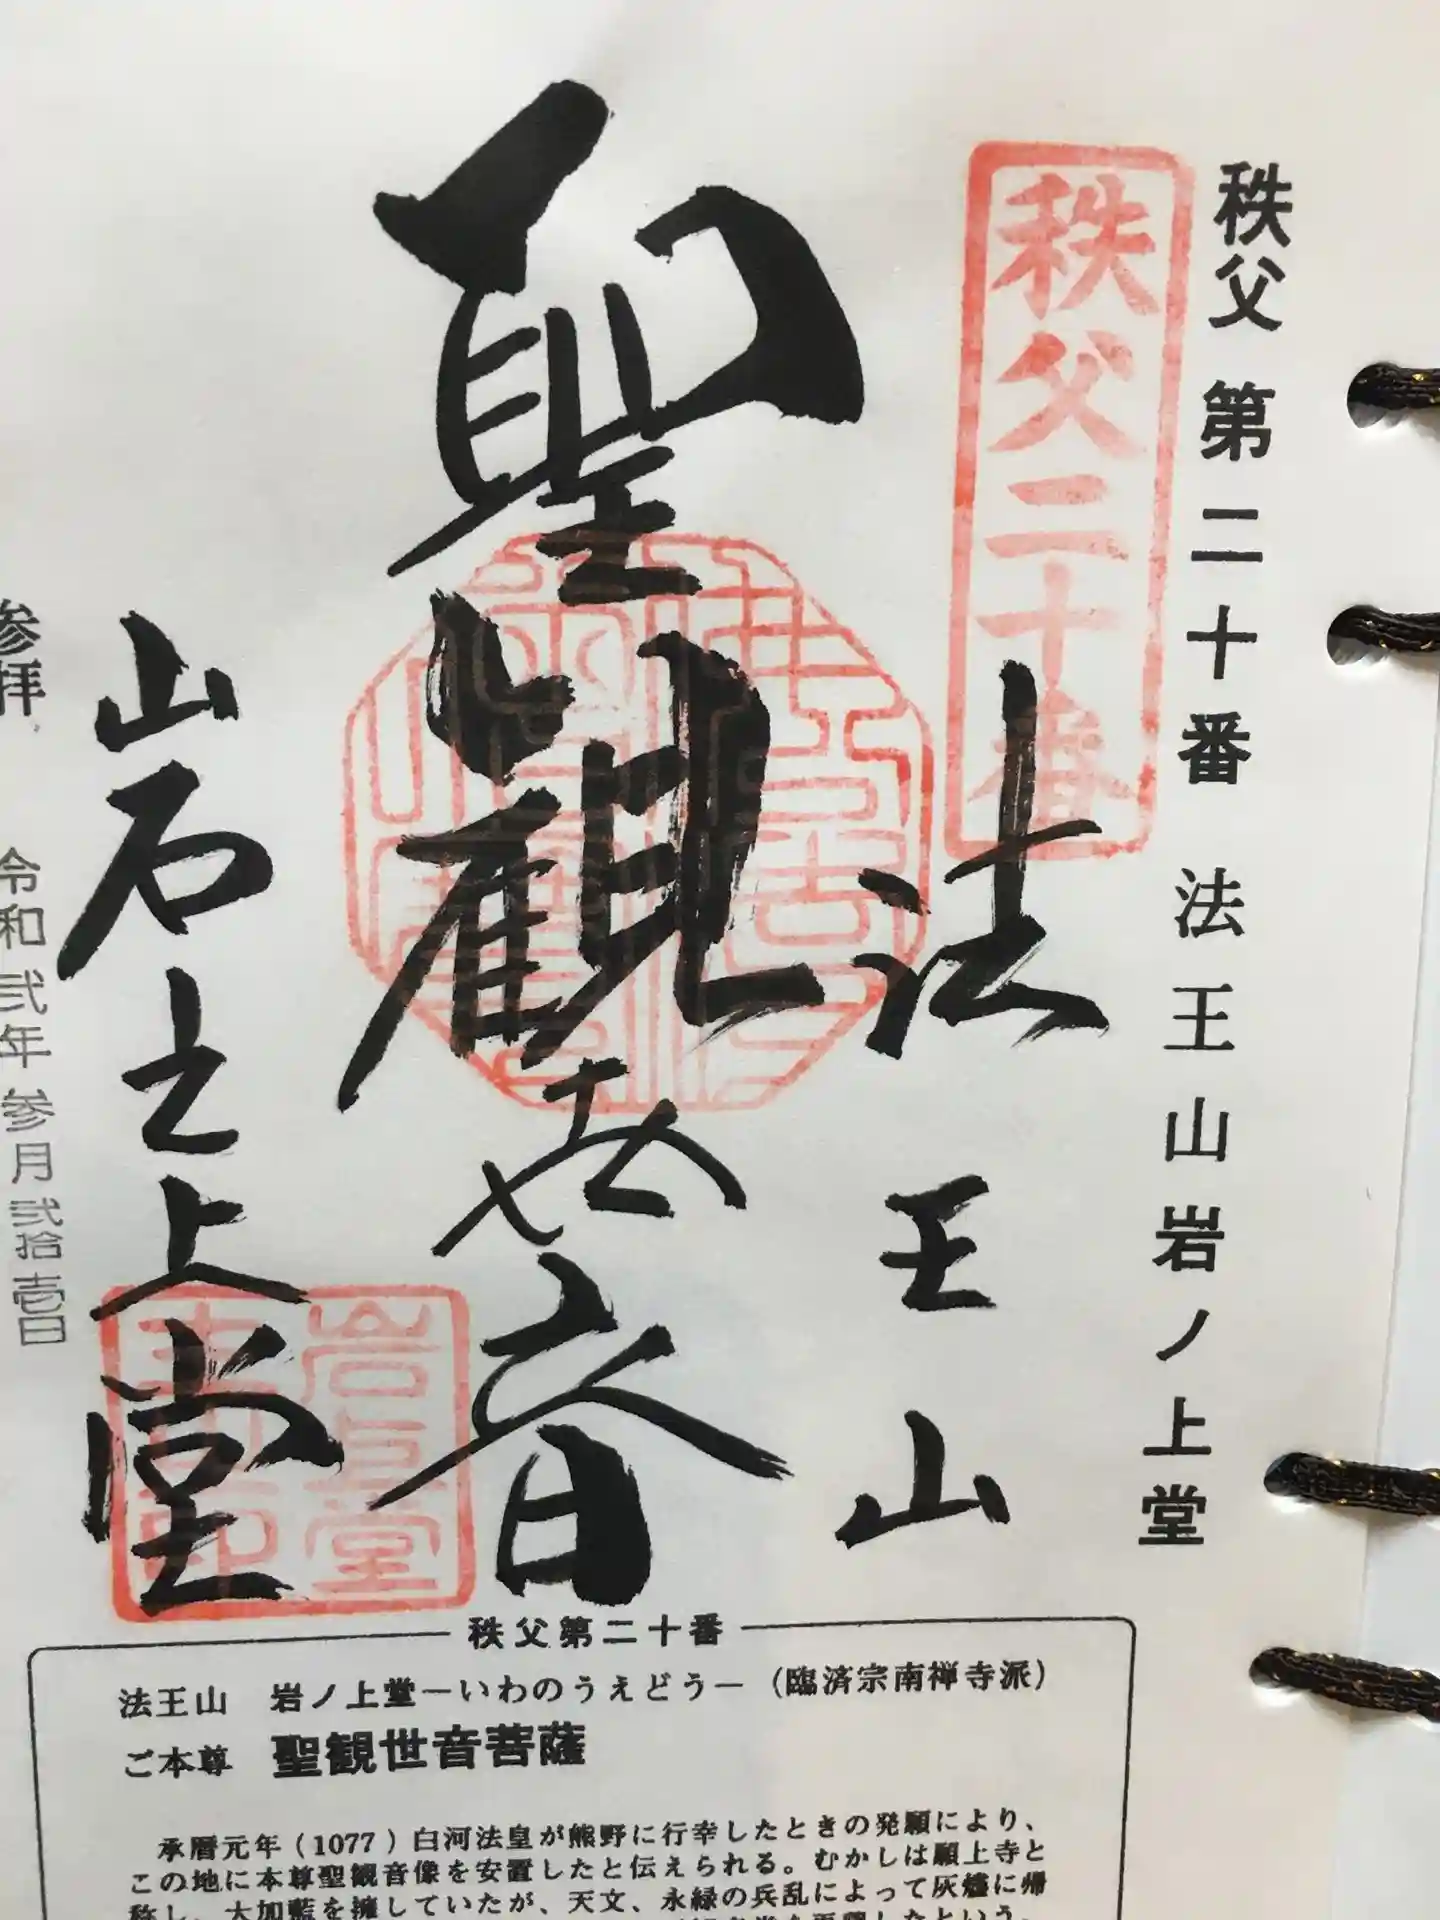 秩父 第二十番 法王山岩ノ上堂
秩父二十番
法王山
聖観世音
岩之上堂
参拝 令和弐年参月弐拾壱日
秩父第二十番
法王山 岩ノ上堂－いわのうえどう－（臨済宗南禅寺派）
ご本尊 聖観世音菩薩
承暦元年（1077）白河法皇が熊野に行幸したときの発願により、
この地に本尊聖観音像を安置したと伝えられる。むかしは願上寺と
称し、大加藍を擁していたが、天文、永緑の兵乱によって灰燼に帰